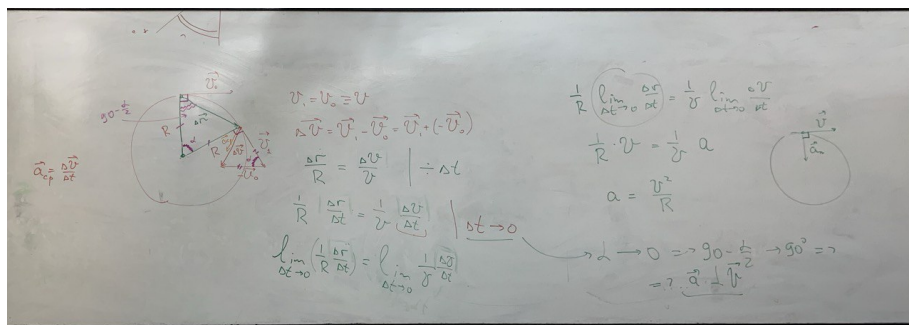 V⃗₀
90-α/2
Δr⃗
R
α
R
ΔV⃗
V⃗₁
-V⃗₀
a⃗ср = ΔV⃗/Δt
V₁ = V₀ ≡ V
ΔV⃗ = V⃗₁ - V⃗₀ = V⃗₁ + (-V⃗₀)
Δr/R = ΔV/V | ÷ Δt
1/R |Δr/Δt| = 1/V |ΔV/Δt| | Δt → 0
lim Δt→0 (1/R Δr/Δt) = lim Δt→0 1/V (ΔV/Δt)
1/R (lim Δt→0 Δr/Δt) = 1/V lim Δt→0 ΔV/Δt
1/R · V = 1/V a
a = V²/R
V⃗
a⃗
α → 0 => 90 - α/2 → 90° =>
=> a⃗ ⊥ V⃗